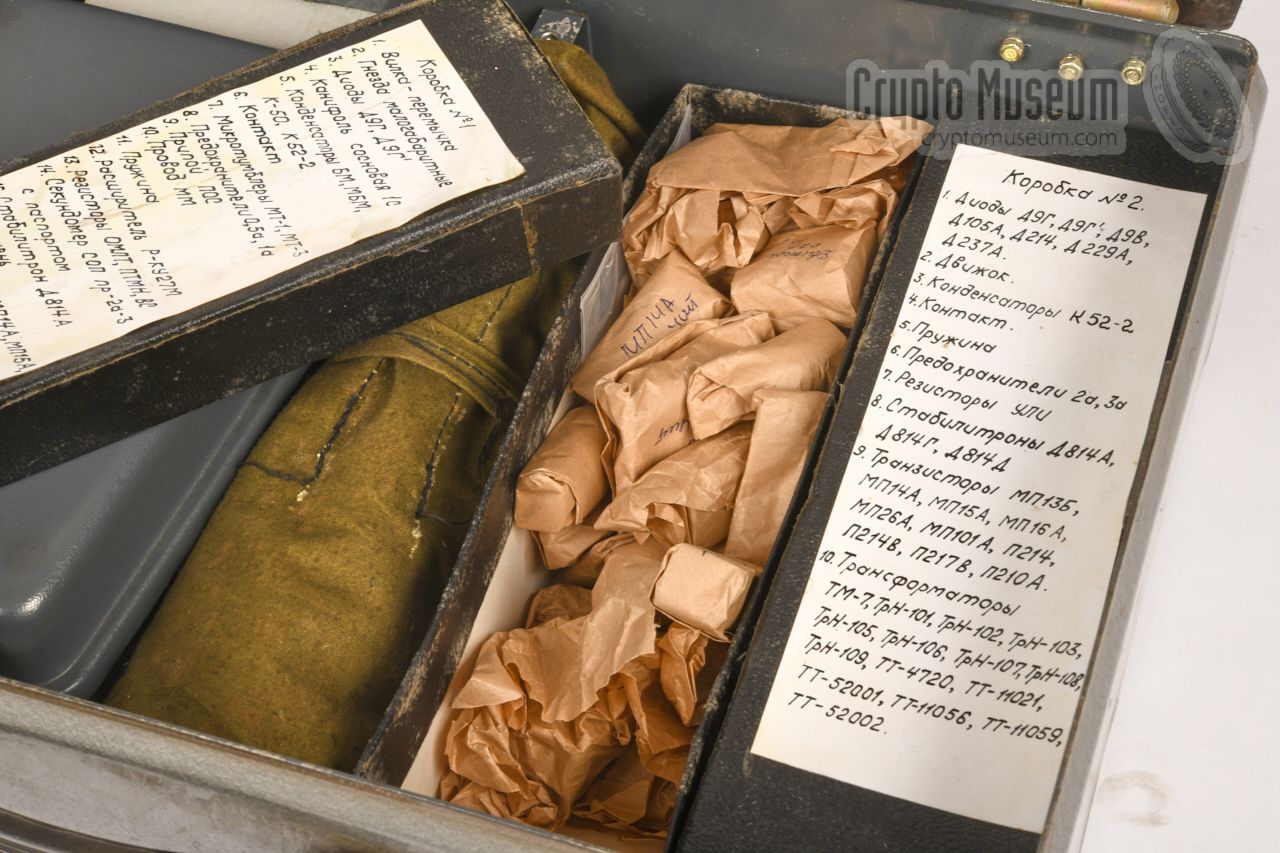 Коробка №1
1. Вилка-перемычка
2. Гнезда малогабаритные
3. Диоды Д9Г, Д9Г'
4. Канифоль сосновая 1с
5. Конденсаторы БМ, МБМ,
К-50, К52-2
6. Контакт
7. Микротумблеры МТ-1, МТ-3
8. Предохранители 0,5а, 1а
9. Припой ПОС
10. Провод мм
11. Пружина
12. Расширитель Р-КУ27М
13. Резисторы ОМЛТ,
14. Секундомер СОП пр-2а-3
с паспортом
Стабилитрон Д814А
МП14А, МП16А,
Crypto Museum
cryptomuseum.com
Коробка №2.
1. Диоды Д9Г, Д9Г', Д9В,
Д105А, Д214, Д229А,
Д237А.
2. Движок.
3. Конденсаторы К52-2
4. Контакт.
5. Пружина
6. Предохранители 2а, 3а
7. Резисторы УЛИ
8. Стабилитроны Д814А,
Д814Г, Д814Д
9. Транзисторы МП13Б,
МП14А, МП15А, МП16А,
МП26А, МП101А, П214,
П214В, П217В, П210А.
10. Трансформаторы
ТМ-7, ТрН-101, ТрН-102, ТрН-103,
ТрН-105, ТрН-106, ТрН-107, ТрН-108,
ТрН-109, ТТ-4720, ТТ-11021,
ТТ-52001, ТТ-11056, ТТ-11059,
ТТ-52002.
МП14А